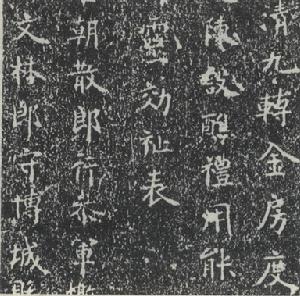 清九轉金房度
陳設醮禮用能
靈効祉表
朝散郎行參軍攝
文林郎守博城縣